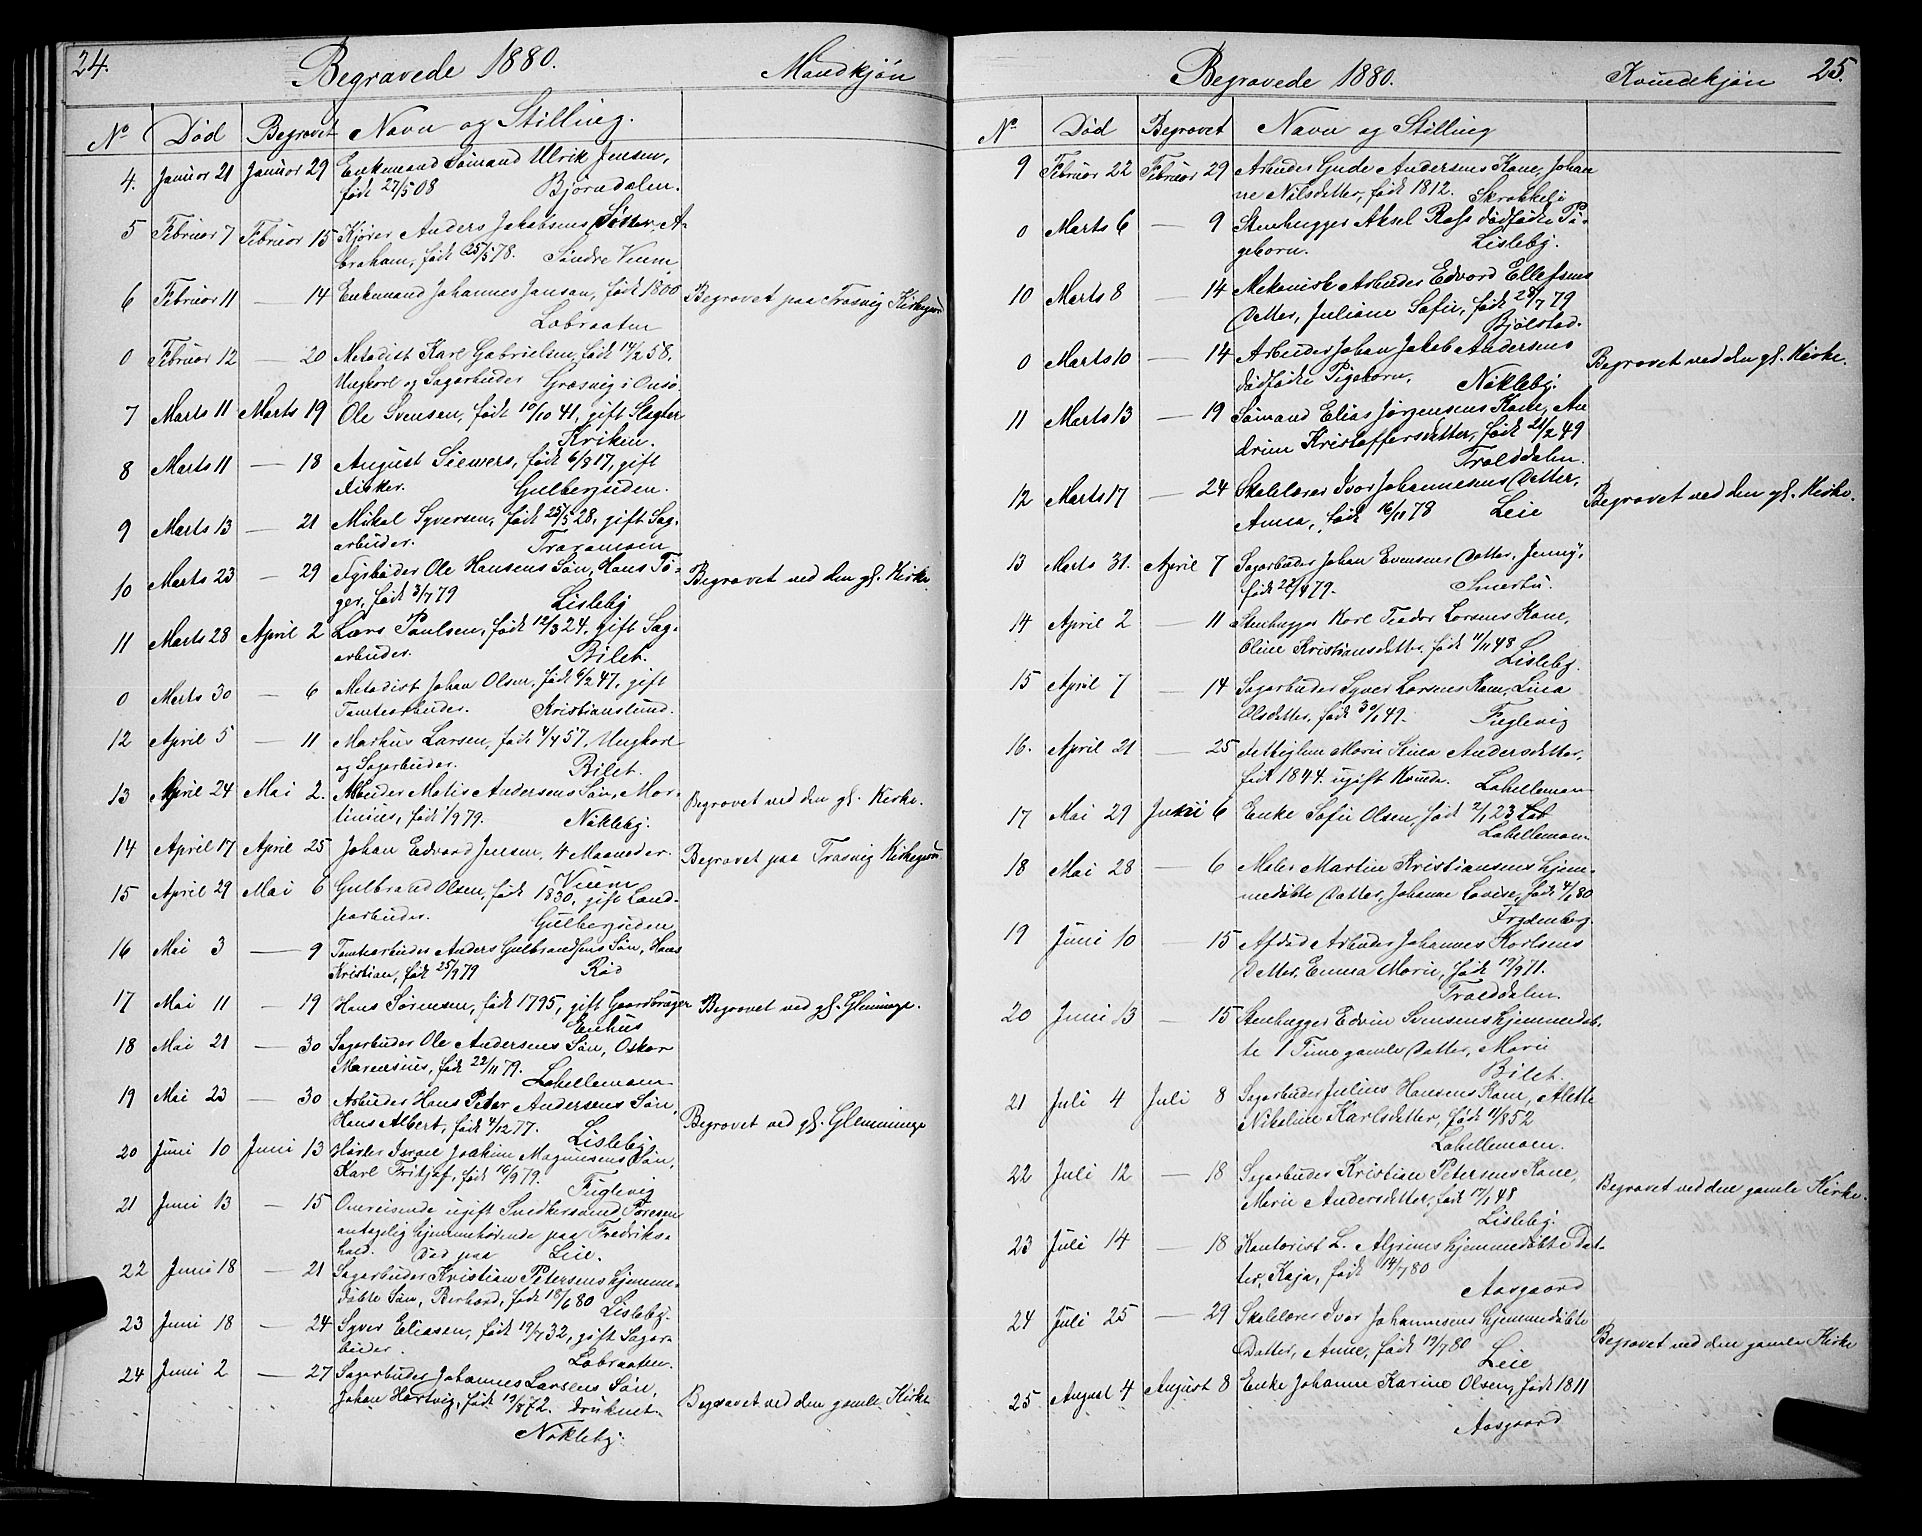 24.
Begravede 1880.
Mandkjön
No Död Begravet Navn og Stilling.
4. Januar 21 Januar 29 Enkemand Sömand Ulrik Jensen,
född 27/5 08 Björndalen.
5 Februar 7 Februar 15 Kjörer Anders Jakobsens Sön, A-
braham, födt 25/5 78. Söndre
6 Februar 11 — 14 Enkemand Johannes Jansan, födt 1800 Begravet paa Trosvig Kirkegaard
Labraaten
0 Februar 12 — 20 Metodist Karl Gabrielsen, födt 14/2 58,
Ungkarl og Sagarbeider Græsvig i Onsö
7 Marts 11 Marts 19 Ole Svensen, födt 10/10 41, gift Slagter
Kriken.
8 Marts 11 — 18 August Siewers, födt 6/8 17, gift
Fisker. Gulbergsiden.
9 Marts 13 — 21 Mikal Syversen, födt 25/5 28, gift Sag-
arbeider. Traramsen
10 Marts 23 — 29 Fyrböder Ole Hansens Sön, Hans
ger, födt 3/7 79 Lisleby Begravet ved den gl. Kirke.
11 Marts 28 April 2 Lars Paulsen, födt 12/3 24, gift Sag-
arbeider. Bilet.
0 Marts 30 — 6 Metodist Johan Olsen, födt 6/2 47, gift
Tomtearbeider. Kristianslund.
12 April 5 — 11 Markus Larsen, födt 4/4 57, Ungkarl
og Sagarbeider. Bilet.
13 April 24 Mai 2. Arbeider Matis Andersens Sön, Mar-
tinius, födt 1/9 79. Nökleby. Begravet ved den gl. Kirke.
14 April 17 April 25 Johan Edvard Jensen, 4 Maaneder. Begravet paa Trosvig Kirkegaard
Veum
15 April 29 Mai 6 Gulbrand Olsen, födt 1830, gift Land-
arbeider. Gulbergsiden
16 Mai 3 — 9 Tomtearbeider Anders Gulbrandsens Sön, Hans
Kristian, födt 25/9 79 Röd
17 Mai 11 — 19 Hans Sörensen, födt 1795, gift Gaardbruger Begravet ved gl. Glemminge.
Enhus
18 Mai 21 — 30 Sagarbeider Ole Andersens Sön, Oskar
Marensius, födt 22/11 79. Lahellemoen
19 Mai 23 — 30 Arbeider Hans Peter Andersens Sön,
Hans Albert, födt 4/12 77. Lisleby Begravet ved gl. Glemminge
20 Juni 10 Juni 13 Israel Joakim Magnusens Sön,
Karl Fritjof, födt 16/9 79. Fuglevig
21 Juni 13 — 15 Omreisende ugift Snedkersvend Poresen
antagelig hjemmehörende paa Fredriks-
hald. Död paa Leie.
22 Juni 18 — 21 Sagarbeider Kristian Petersens hjemme-
döbte Sön, Berhard, födt 18/6 80 Lisleby.
23 Juni 18 — 24 Syver Eliasen, födt 19/7 32, gift Sagar-
beider. Labraaten.
24 Juni 2 — 27 Sagarbeider Johannes Larsens Sön,
Johan Hartvig, födt 19/8 72. druknet. Begravet ved den gamle Kirke
Nökleby.
Begravede 1880.
Kvindekjön 25.
No Död Begravet Navn og Stilling
9 Februar 22 Februar 29 Arbeider Gude Andersens Kone, Johan
ne Nilsdatter, födt 1812. Skrakkeli
0 Marts 6 — 9 Stenhugger Aksel Rafs dödfödte Pi-
geborn. Lisleby.
10 Marts 8 — 14 Mekanisk Arbeider Edvard Ellefsens
Datter, Juliane Sofie, födt 28/7 79
Bjölstad.
0 Marts 10 — 14 Arbeider Johan Jakob Andersens
dödfödte Pigeborn. Nökleby. Begravet ved den gl. Kirke.
11 Marts 13 — 19 Sömand Elias Jörgensens Kone, An
drine Kristoffersdatter, födt 21/2 49
Trolddalen.
12 Marts 17 — 24 Skolelærer Ivar Johannesens Datter,
Anna, födt 16/11 78 Leie Begravet ved den gl. Kirke.
13 Marts 31. April 7 Sagarbeider Johan Evensens Datter, Jenny,
födt 22/4 79. Smertu.
14 April 2 — 11 Stenhugger Karl Teodor Larsens Kone,
Oline Kristiansdatter, födt 11/11 48
Lisleby.
15 April 7 — 14 Sagarbeider Syver Larsens Kone, Lina
Olsdatter, födt 30/1 49. Fuglevig
16. April 21 — 25 Fattiglem Marie Stina Andersdatter,
födt 1844. ugift Kvinde. Lahellemoen
17 Mai 29 Juni 6 Enke Sofie Olsen, födt 2/1 23
Lahellemoen
18 Mai 28 — 6 Maler Martin Kristiansens hjem-
medöbte Datter, Johanne Lovise, födt 4/1 80
Frydenberg.
19 Juni 10 — 15 Afdöd Arbeider Johannes Karlsens
Datter, Emma Marie, födt 19/9 71.
Trolddalen.
20 Juni 13 — 15 Stenhugger Edvin Svensens hjemmedöb-
te 1 Time gamle Datter, Marie
Bilet.
21 Juli 4 Juli 8 Sagarbeider Julius Hansens Kone, Alette
Nikoline Karlsdatter, födt 11/8 52
Lahellemoen.
22 Juli 12 — 18 Sagarbeider Kristian Petersens Kone,
Marie Andersdatter, födt 17/1 48 Begravet ved den gamle Kirke.
Lisleby.
23 Juli 14 — 18 Kontorist L. Algrims hjemmedöbte Dat-
ter, Kaja, födt 14/7 80
Aasgaard
24 Juli 25 — 29 Skolelærer Ivar Johannesens hjemmedöbte
Datter, Anne, födt 19/7 80 Leie Begravet ved den gamle Kirke
25. August 4 August 8 Enke Johanne Karine Olsen, födt 1811
Aasgaard